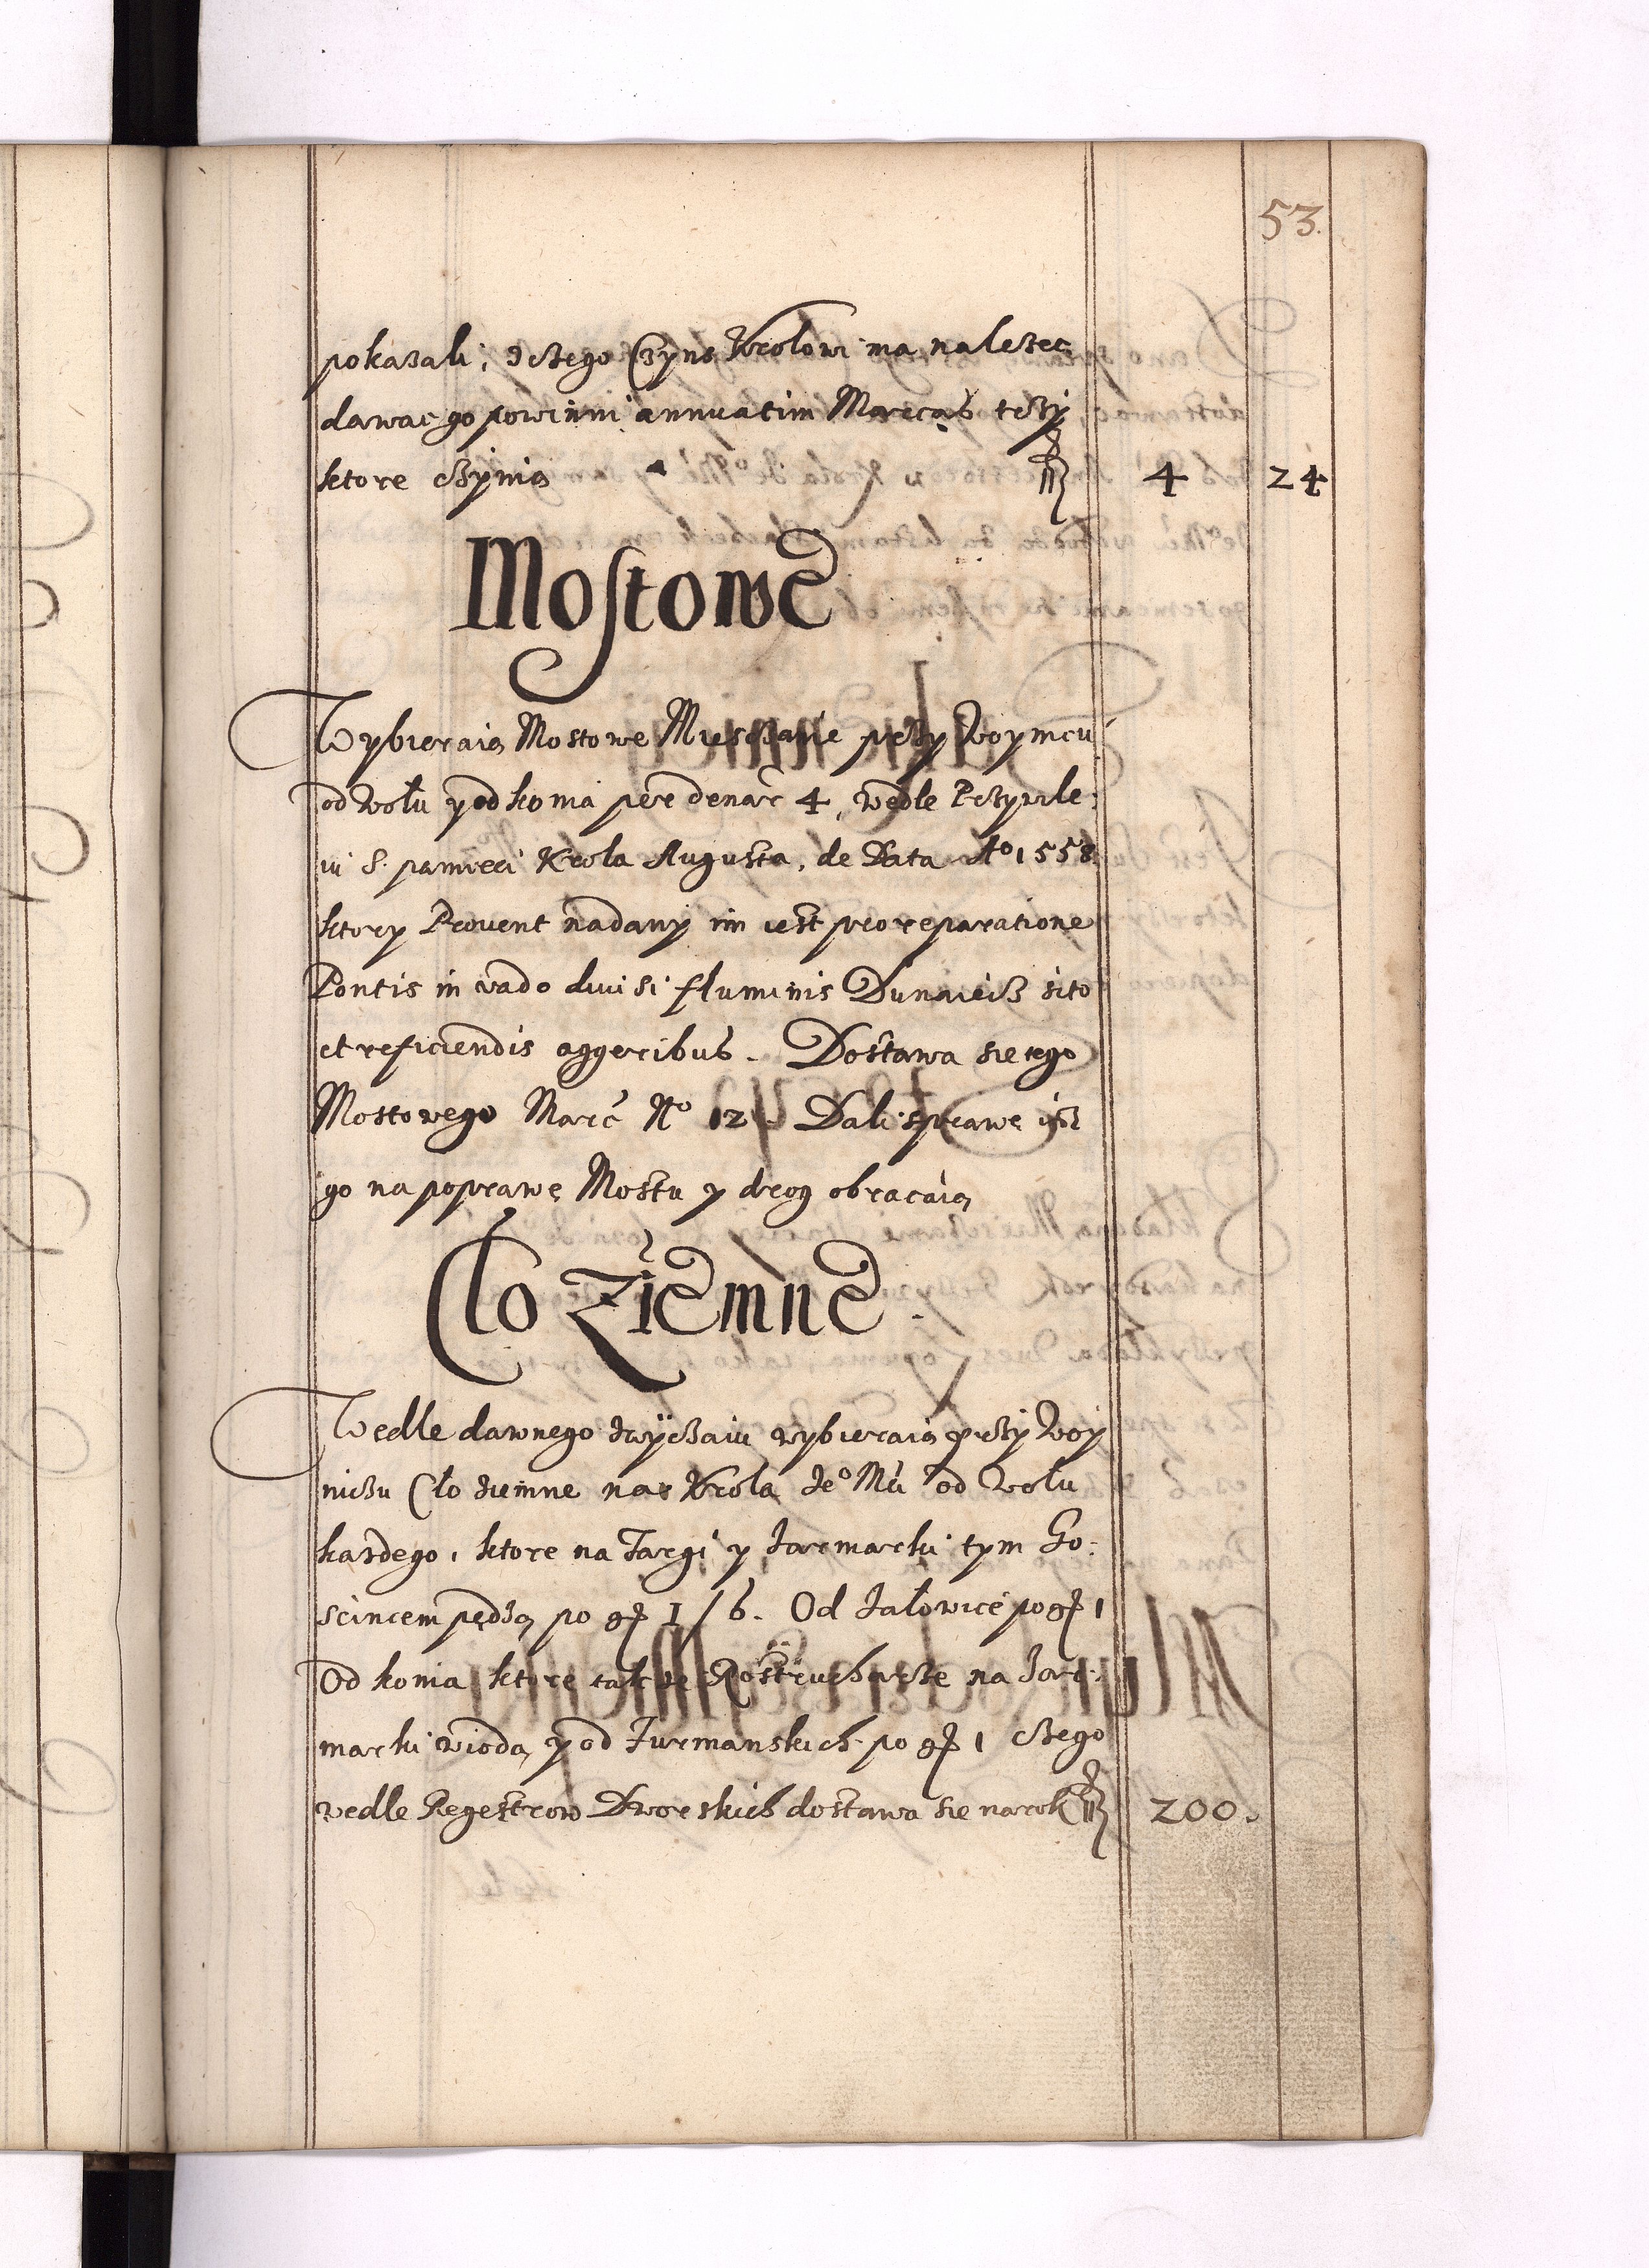 53.
pokazali, z czego Czyns Krolowi ma nalezec
dawac go powinni annuatim Marcas trzy
ktore czynią fl 4 24
Mostowe
Wybieraią Mostowe Miesczanie przy Woynicu
od Wołu y od konia per denar 4, wedle Przywile:
iu S. pamieci Krola Augusta, de Data Aº 1558.
ktory Provent nadany im iest pro reparatione
Pontis in vado divisi fluminis Dunaiecz sito
et reficiendis aggeribus. Dostawa sie tego
Mostowego Marc Nº 12. Dali sprawę isz
go na poprawę Mostu y drog obracaią
Cło Ziemne.
Wedle dawnego zwyczaiu wybieraią przy Woy
niczu Cło ziemne na Krola Jeº Mci od Wołu
kazdego, ktore na Targi y Jarmarki tym Go:
scincem pędzą po gr 1/6. Od Jałowice po gr 1
Od konia ktore takze Rostrucharze na Jar:
marki wiodą y od Furmanskich po gr 1 czego
wedle Regestrow Dworskich dostawa sie na rok fl 200.